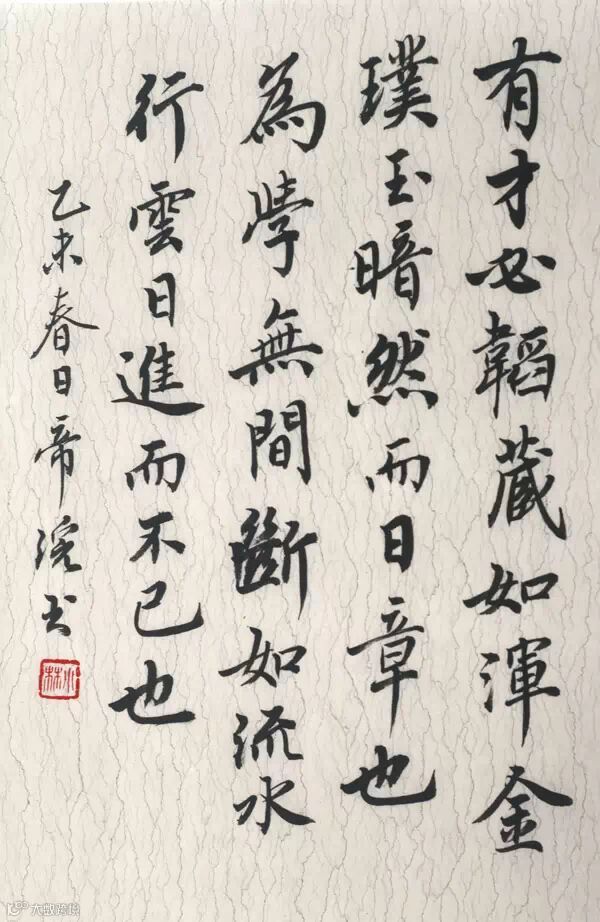 有才必韜藏如渾金
璞玉暗然而日章也
為學無間斷如流水
行雲日進而不已也
乙未春日帝浣书
大数跨境